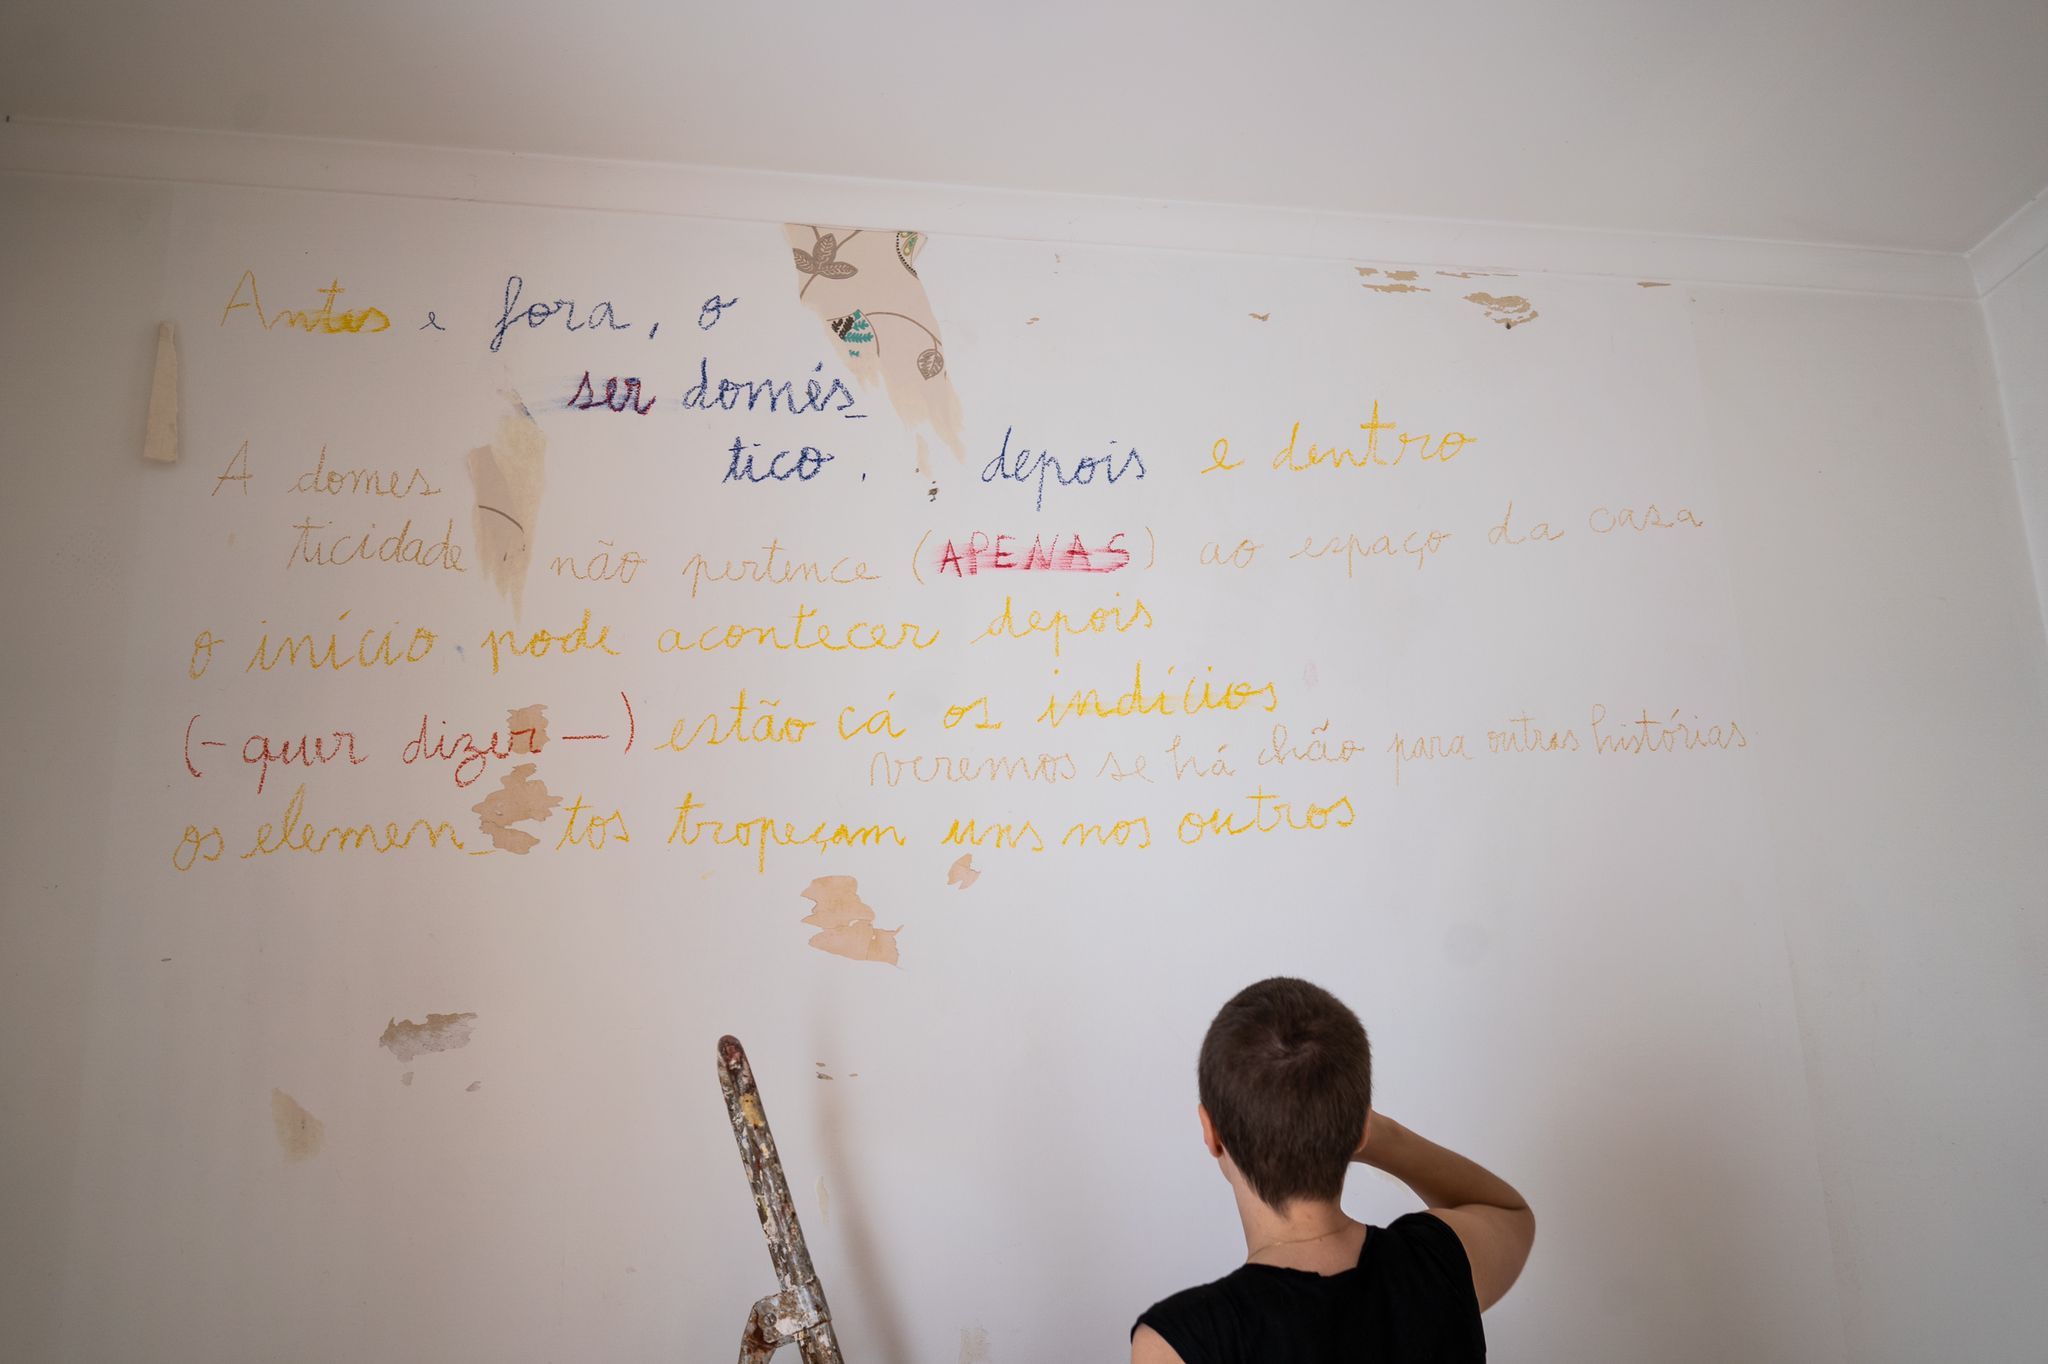 Antes e fora, o
ser domés_
tico. depois e dentro
A domes
ticidade não pertence (APENAS) ao espaço da casa
o início pode acontecer depois
(- quer dizer —) estão cá os indícios
veremos se há chão para outras histórias
os elemen_ tos tropeçam uns nos outros